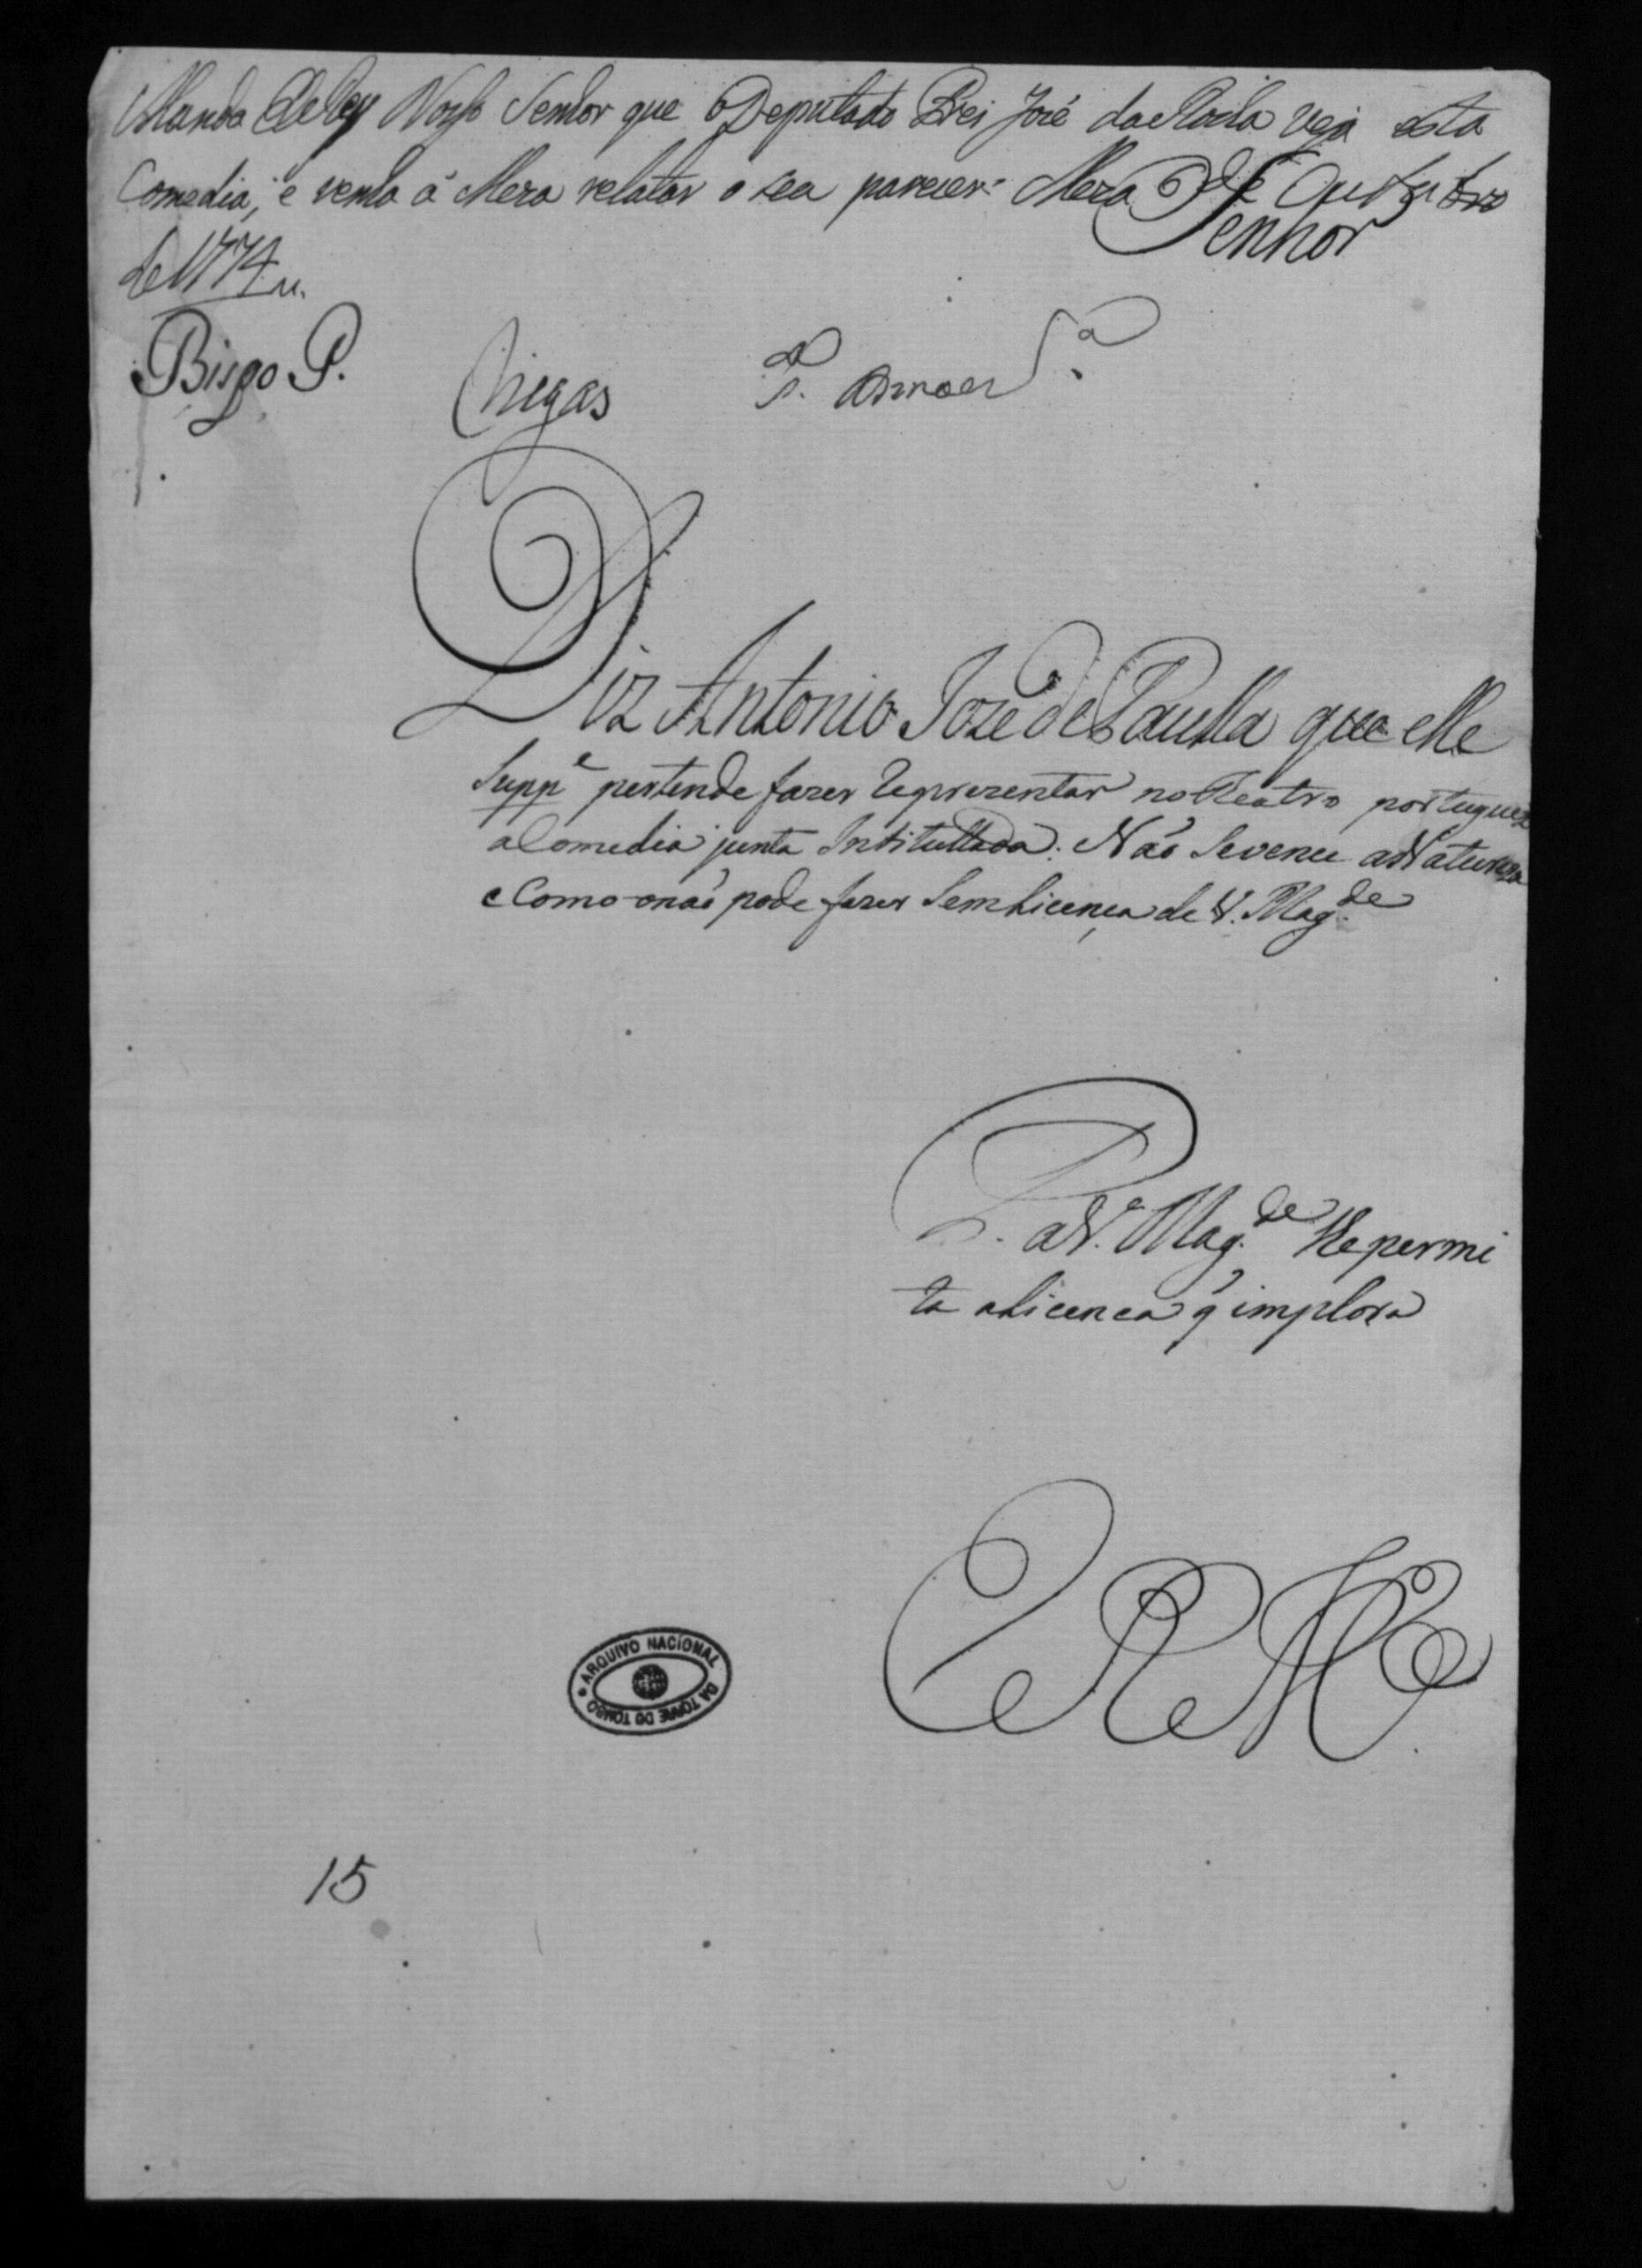 Manda ElRey Nosso Senhor que o Deputado Frei José da Rocha veja esta
Comedia, e venha á Meza relatar o seu parecer. Meza de Outubro
de 1774
Senhor
Bispo P.
Viegas
Diz Antonio Joze de Paulla que elle
Supp.e pertende fazer Reprezentar no Theatro portuguez
a Comedia junta Intitullada: Naó Se vence a Natureza
e Como o naó pode fazer Sem Licença de V. Mag.de
P. a V. Mag.de lhe permi
ta a Licenca q̃ implora
E R M.ce
ARQUIVO NACIONAL DA TORRE DO TOMBO
15